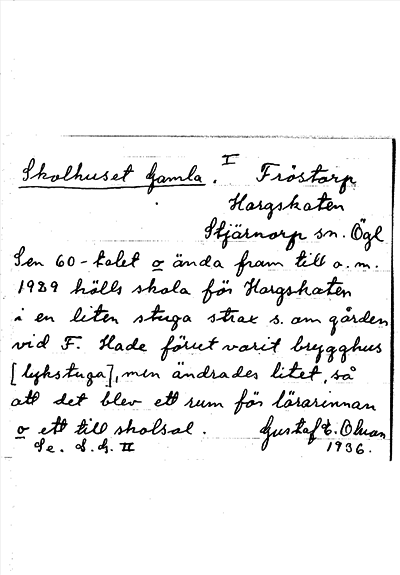 Skolhuset Gamla. I Fröstorp
Hargskaten
Stjärnorp sn. Ögl
Sen 60-talet o ända fram till o.m.
1989 hölls skola för Hargskaten
i en liten stuga strax s. om gården
vid F. Hade förut varit brygghus
[lykstuga], men ändrades litet, så
att det blev ett rum för lärarinnan
o ett till skolsal. Gustaf E. Olsson
Se. S.G. II 1936.